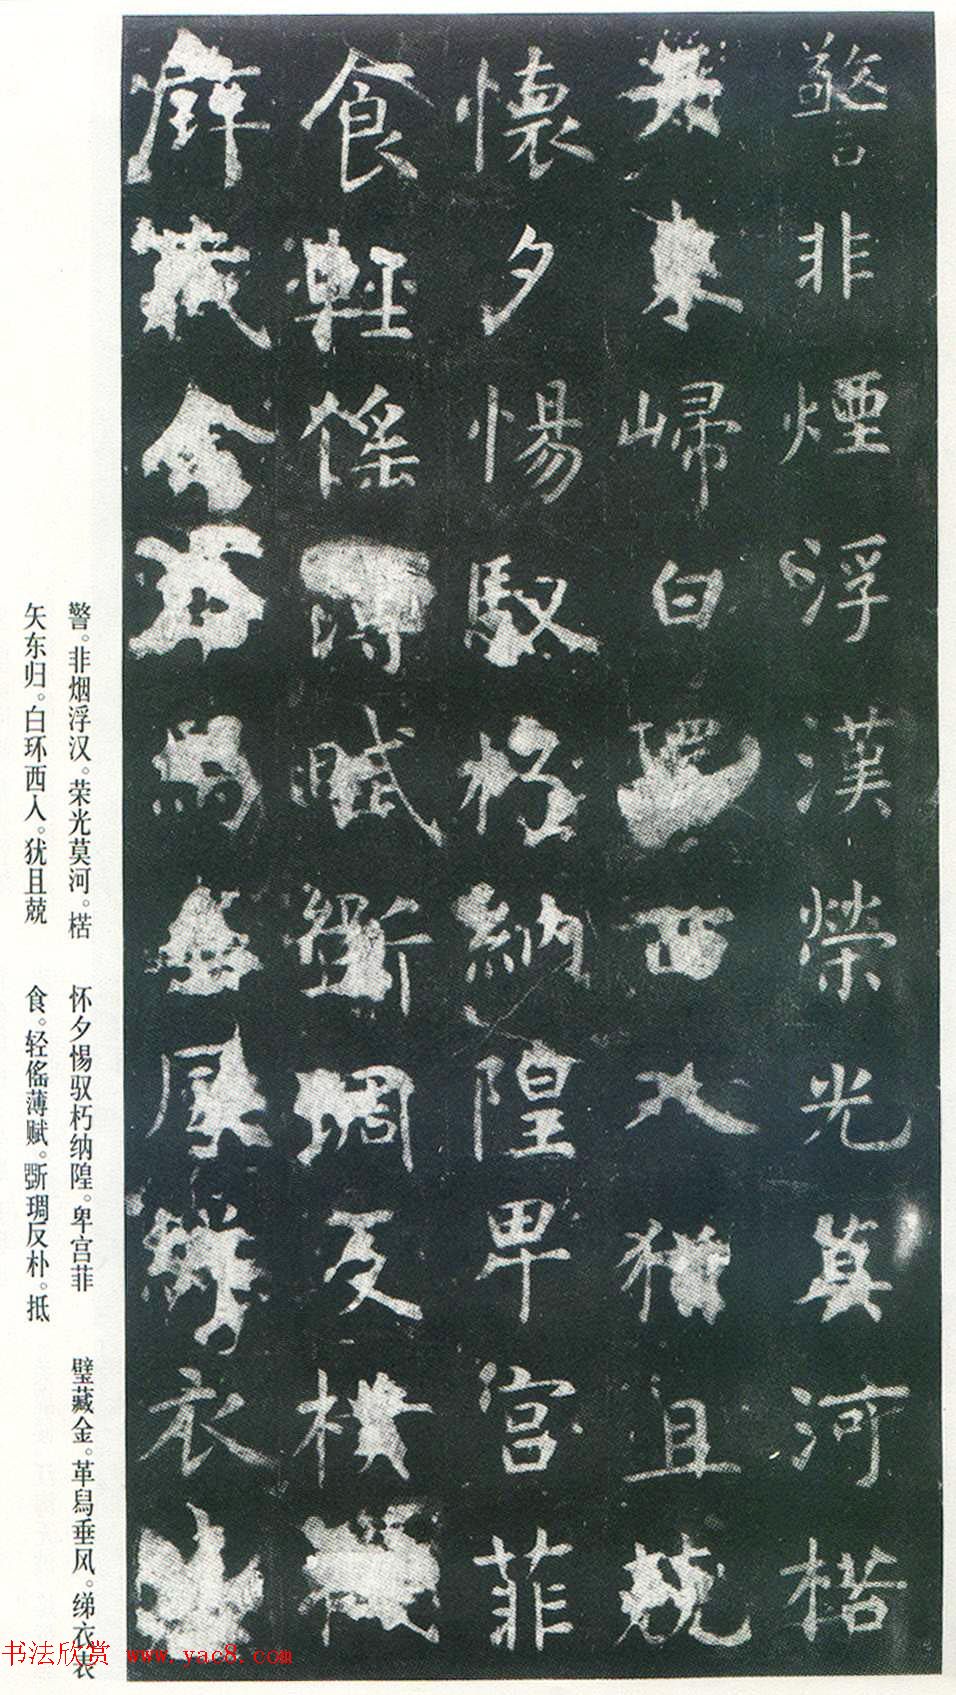 警非煙浮漢榮光莫河楛
矢東歸白環西入猶且兢
懷夕惕馭朽納隍卑宮菲
食輕徭薄賦斲琱反樸抵
璧藏金革舄垂風綈衣表
警。非烟浮汉。荣光莫河。楛
矢东归。白环西入。犹且兢
怀夕惕驭朽纳隍。卑宫菲
食。轻傜薄赋。斲琱反朴。抵
璧藏金。革舄垂风。绨衣表
书法欣赏 www.yac8.com